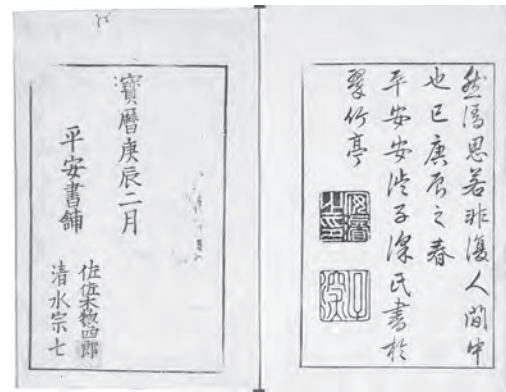 然思若非復人間中
也已庚辰之春
平安安子深氏書於
翠竹亭
寶曆庚辰二月
平安書鋪
佐佐木惣四郎
清水宗七